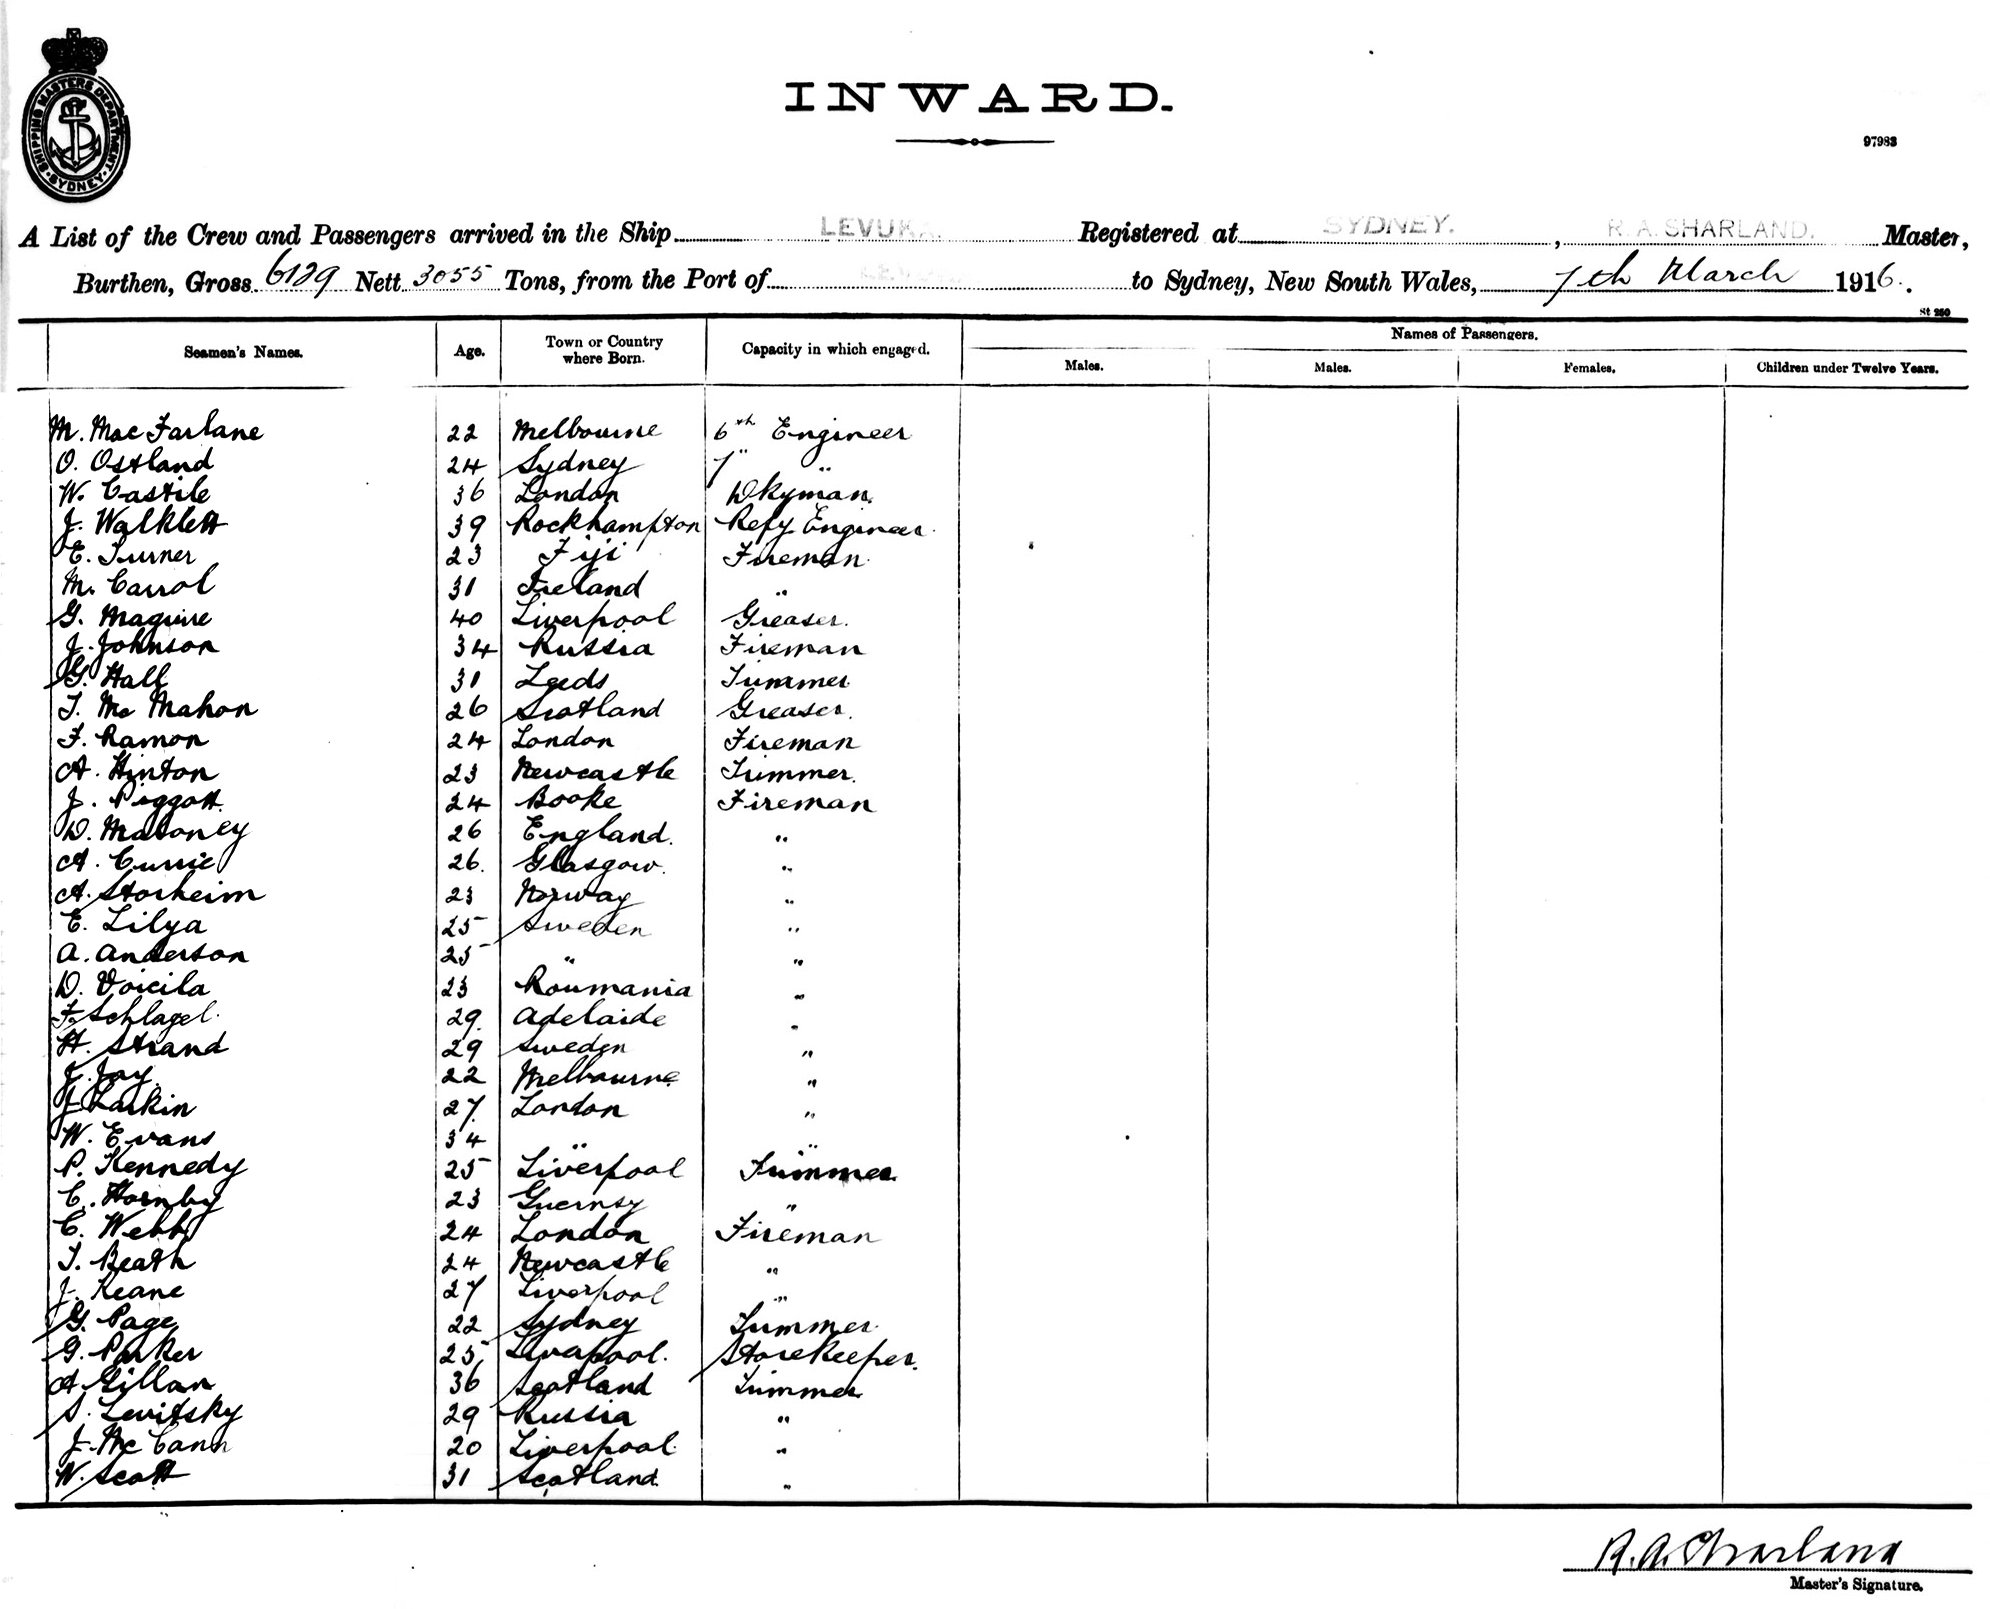 SHIPPING MASTERS DEPARTMENT
SYDNEY
INWARD.
97983
A List of the Crew and Passengers arrived in the Ship LEVUKA. Registered at SYDNEY. , R. A. SHARLAND. Master,
Burthen, Gross 6129 Nett 3055 Tons, from the Port of LEVUKA to Sydney, New South Wales, 7th March 1916.
St 250
Seamen's Names. Age. Town or Country where Born. Capacity in which engaged. Names of Passengers.
Males. Males. Females. Children under Twelve Years.
M. Mac Farlane 22 Melbourne 6th Engineer
O. Ostland 24 Sydney 7" "
W. Castile 36 London Dkyman.
J. Walklett 39 Rockhampton Refy Engineer.
E. Turner 23 Fiji Fireman.
M. Carrol 31 Ireland "
G. Maguire 40 Liverpool Greaser.
J. Johnson 34 Russia Fireman
G. Hall 31 Leeds Trimmer
T. Mc Mahon 26 Scotland Greaser.
F. Ramon 24 London Fireman
A. Hinton 23 Newcastle Trimmer.
J. Piggott. 24 Booke Fireman
D. Maloney 26 England. "
A. Currie 26. Glasgow. "
A. Storheim 23 Norway "
E. Lilya 25 Sweden "
A. Anderson 25 " "
D. Voicila 23 Roumania "
F. Schlagel. 29. Adelaide "
H. Strand 29 Sweden "
J. Jay. 22 Melbourne "
J Larkin 27. London "
W. Evans 34 " "
P. Kennedy 25 Liverpool Trimmer
C. Hornby 23 Guernsy "
C. Webb 24 London Fireman
T. Beath 24 Newcastle "
J. Keane 27 Liverpool "
G. Page 22 Sydney Trimmer
G. Parker 25 Liverpool. Storekeeper.
A Gillan 36 Scotland Trimmer
S. Levitsky 29 Russia "
J. Mc Cann 20 Liverpool. "
W. Scott 31 Scotland. "
R. A. Sharland
Master's Signature.